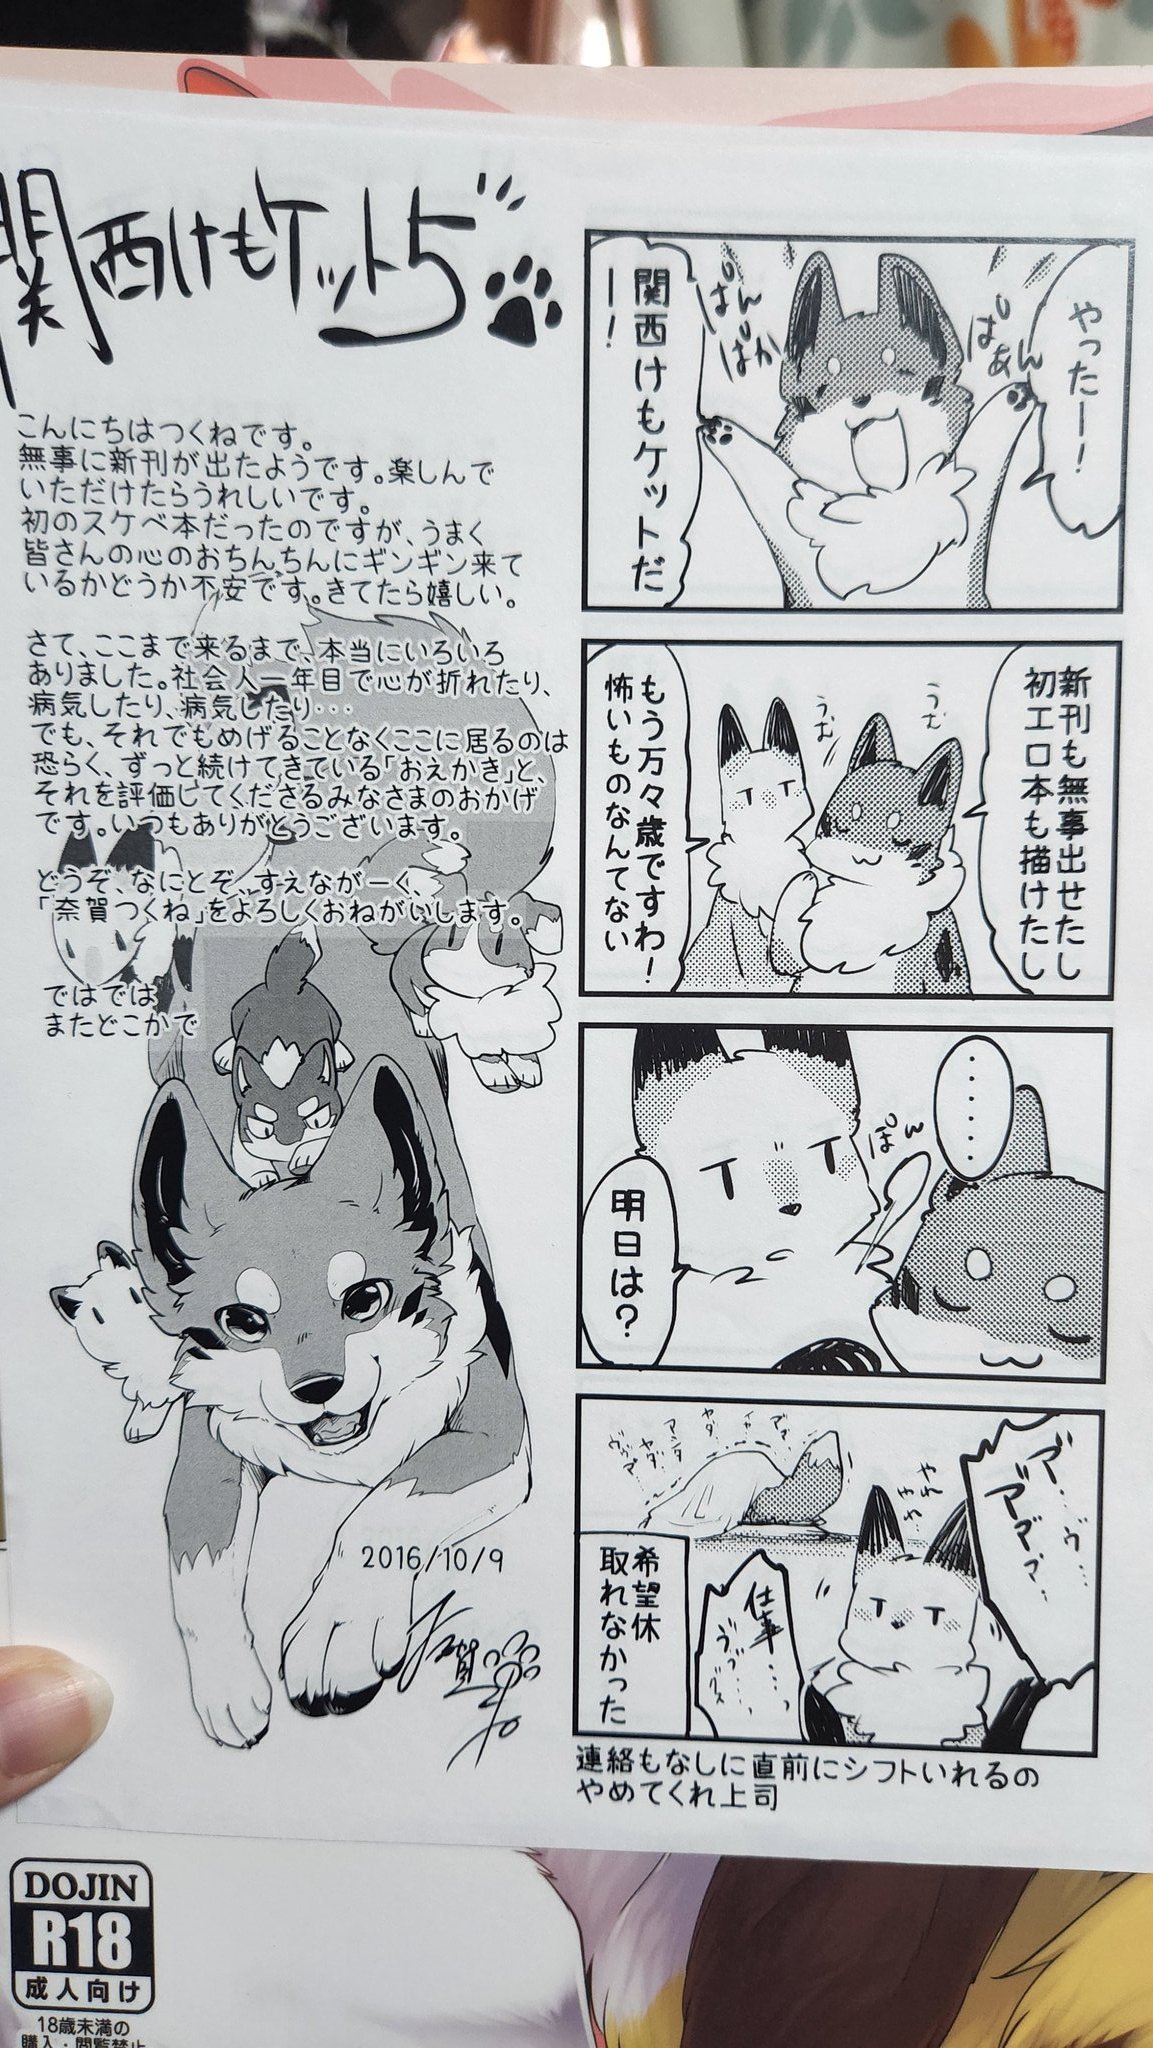 関西けもケット5
こんにちはつくねです。
無事に新刊が出たようです。楽しんで
いただけたらうれしいです。
初のスケベ本だったのですが、うまく
皆さんの心のおちんちんにギンギン来て
いるかどうか不安です。きてたら嬉しい。
さて、ここまで来るまで、本当にいろいろ
ありました。社会人一年目で心が折れたり、
病気したり、病気したり・・・
でも、それでもめげることなくここに居るのは
恐らく、ずっと続けてきている「おえかき」と、
それを評価してくださるみなさまのおかげ
です。いつもありがとうございます。
どうぞ、なにとぞ、すえながーく、
「奈賀つくね」をよろしくおねがいします。
ではでは
またどこかで
2016/10/9
やったー!
ぱあん
ぱん
ぱか
関西けもケットだ
ー!
新刊も無事出せたし
初エロ本も描けたし
うむ
うむ
もう万々歳ですわ!
怖いものなんてない
……
ぽん
明日は?
やれ
やれ
仕事…
希望休
取れなかった
連絡もなしに直前にシフトいれるの
やめてくれ上司
DOJIN
R18
成人向け
18歳未満の
購入・閲覧禁止